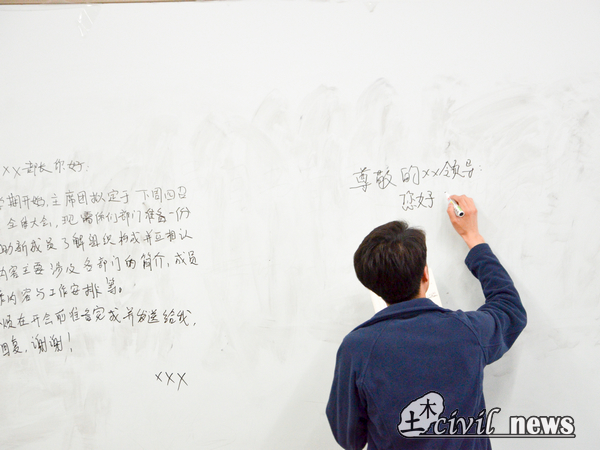 XX部长你好:
学期开始,主席团拟定于下周四召
全体大会,现需你们部门准备一份
助新成员了解组织构成并互相认
内容主要涉及各部门的简介,成员
内容与工作安排等。
须在开会前准备完成并发送给我,
回复,谢谢!
XXX
尊敬的xx领导:
您好
土木 civil news